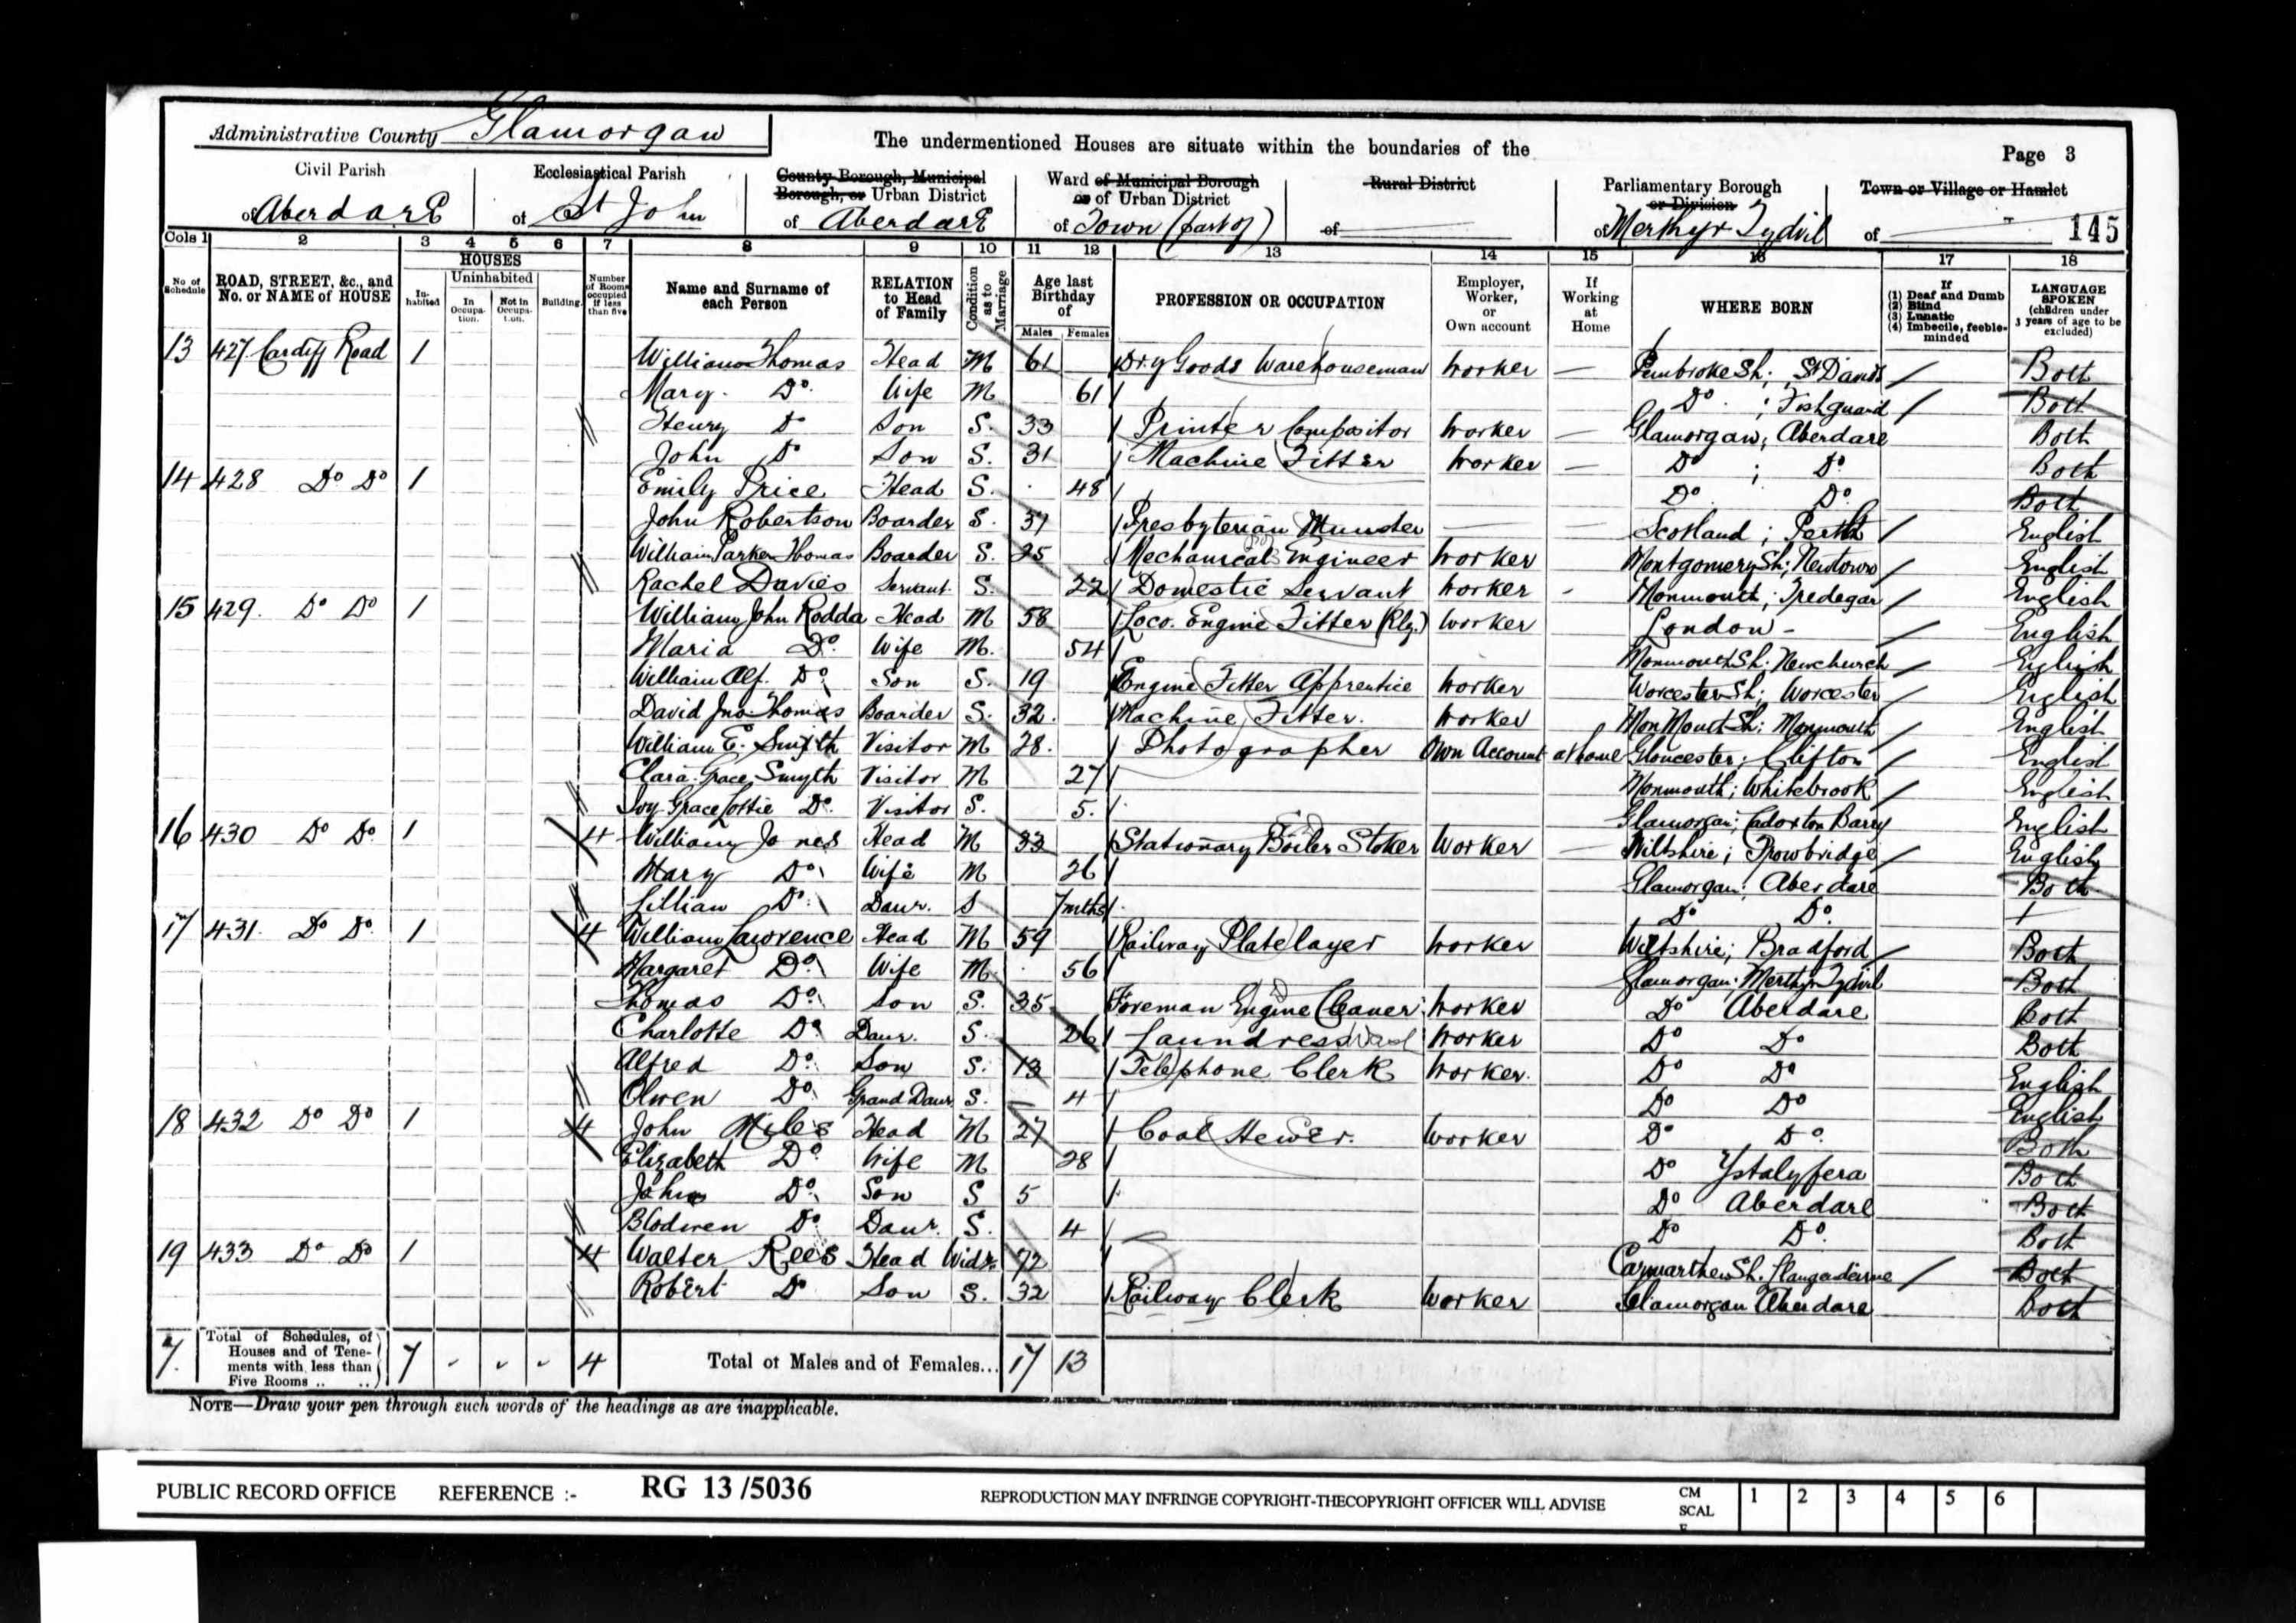 Administrative County Glamorgan
The undermentioned Houses are situate within the boundaries of the
Page 3
Civil Parish of Aberdare
Ecclesiastical Parish of St John
County Borough, Municipal Borough, or Urban District of Aberdare
Ward of Municipal Borough or of Urban District of Town (part of)
Rural District of
Parliamentary Borough or Division of Merthyr Tydvil
Town or Village or Hamlet of
145
Cols 1 2 3 4 5 6 7 8 9 10 11 12 13 14 15 16 17 18
No of Schedule
ROAD, STREET, &c., and No. or NAME of HOUSE
HOUSES
Inhabited
Uninhabited
In Occupation.
Not in Occupation.
Building.
Number of Rooms occupied if less than five
Name and Surname of each Person
RELATION to Head of Family
Condition as to Marriage
Age last Birthday of
Males Females
PROFESSION OR OCCUPATION
Employer, Worker, or Own account
If Working at Home
WHERE BORN
If (1) Deaf and Dumb (2) Blind (3) Lunatic (4) Imbecile, feeble-minded
LANGUAGE SPOKEN (children under 3 years of age to be excluded)
13 427 Cardiff Road 1 William Thomas Head M 61 Dry Goods Warehouseman Worker — Pembroke Sh; St Davids Both
Mary Do. Wife M 61 Do. ; Fishguard Both
Henry Do Son S. 33 Printer Compositor Worker — Glamorgan; Aberdare Both
John Do Son S. 31 Machine Fitter Worker — Do ; Do Both
14 428 Do Do 1 Emily Price Head S. 48 Do. Do. Both
John Robertson Boarder S. 37 Presbyterian Minister — — Scotland; Perth English
William Parker Thomas Boarder S. 25 Mechanical Engineer Worker Montgomery Sh; Newtown English
Rachel Davies Servant S. 22 Domestic Servant Worker - Monmouth; Tredegar English
15 429. Do Do 1 William John Rodda Head M 58 Loco. Engine Fitter (Rly.) Worker London - English
Maria Do. Wife M. 54 Monmouth Sh. Newchurch English
William Alf. Do Son S. 19 Engine Fitter Apprentice Worker Worcester Sh; Worcester English
David Jno. Thomas Boarder S. 32. Machine Fitter. Worker Monmouth Sh; Monmouth English
William E. Smyth Visitor M 28. Photographer Own Account at home Gloucester; Clifton English
Clara Grace Smyth Visitor M 27 Monmouth; Whitebrook English
Ivy Grace Lottie Do. Visitor S. 5. Glamorgan; Cadoxton Barry English
16 430 Do Do. 1 4 William Jones Head M 33 Stationary Boiler Stoker Worker — Wiltshire; Trowbridge English
Mary Do. Wife M 26 Glamorgan; Aberdare Both
Lillian Do. Daur. S 7mths Do Do.
17 431. Do Do. 1 4 William Lawrence Head M 59 Railway Platelayer Worker Wiltshire; Bradford Both
Margaret Do. Wife M. 56 Glamorgan; Merthyr Tydvil Both
Thomas Do. Son S. 35 Foreman Engine Cleaner Worker Do Aberdare Both
Charlotte Do. Daur. S. 26 Laundress Worker Do Do Both
Alfred Do. Son S. 13 Telephone Clerk Worker. Do Do English
Olwen Do. Grand Daur. S. 4 Do Do English
18 432 Do Do 1 4 John Miles Head M 27 Coal Hewer. Worker Do Do. Both
Elizabeth Do. Wife M 28 Do Ystalyfera Both
John Do. Son S 5 Do Aberdare Both
Blodwen Do. Daur. S. 4 Do Do. Both
19 433 Do Do 1 4 Walter Rees Head Widr. 72 Carmarthen Sh. Both
Robert Do Son S. 32 Railway Clerk Worker Glamorgan Aberdare Both
7. Total of Schedules, of Houses and of Tenements with less than Five Rooms .. .. 7 4 Total of Males and of Females... 17 13
NOTE—Draw your pen through such words of the headings as are inapplicable.
PUBLIC RECORD OFFICE REFERENCE :- RG 13 /5036 REPRODUCTION MAY INFRINGE COPYRIGHT-THECOPYRIGHT OFFICER WILL ADVISE CM SCALE 1 2 3 4 5 6